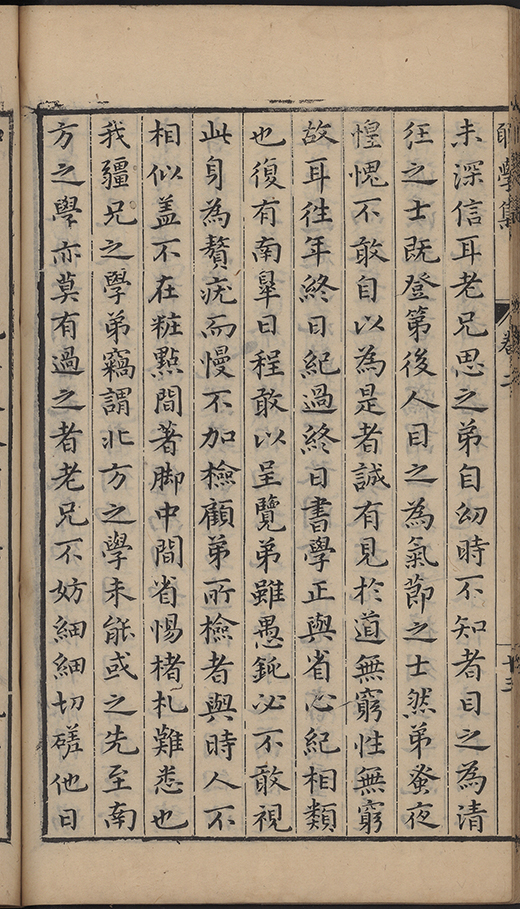 未深信耳老兄思之弟自㓜時不知者目之為清
狂之士既登第後人目之為氣節之士然弟蚤夜
惶愧不敢自以為是者誠有見於道無窮性無窮
故耳徃年終日紀過終日書學正與省心紀相類
也復有南臯日程敢以呈覽弟雖愚鈍必不敢視
此身為贅疣而慢不加檢顧弟所檢者與時人不
相似盖不在粧點間著脚中間省惕楮札難悉也
我疆兄之學弟竊謂北方之學未能或之先至南
方之學亦莫有過之者老兄不妨細細切磋他日
學集
卷二
十三